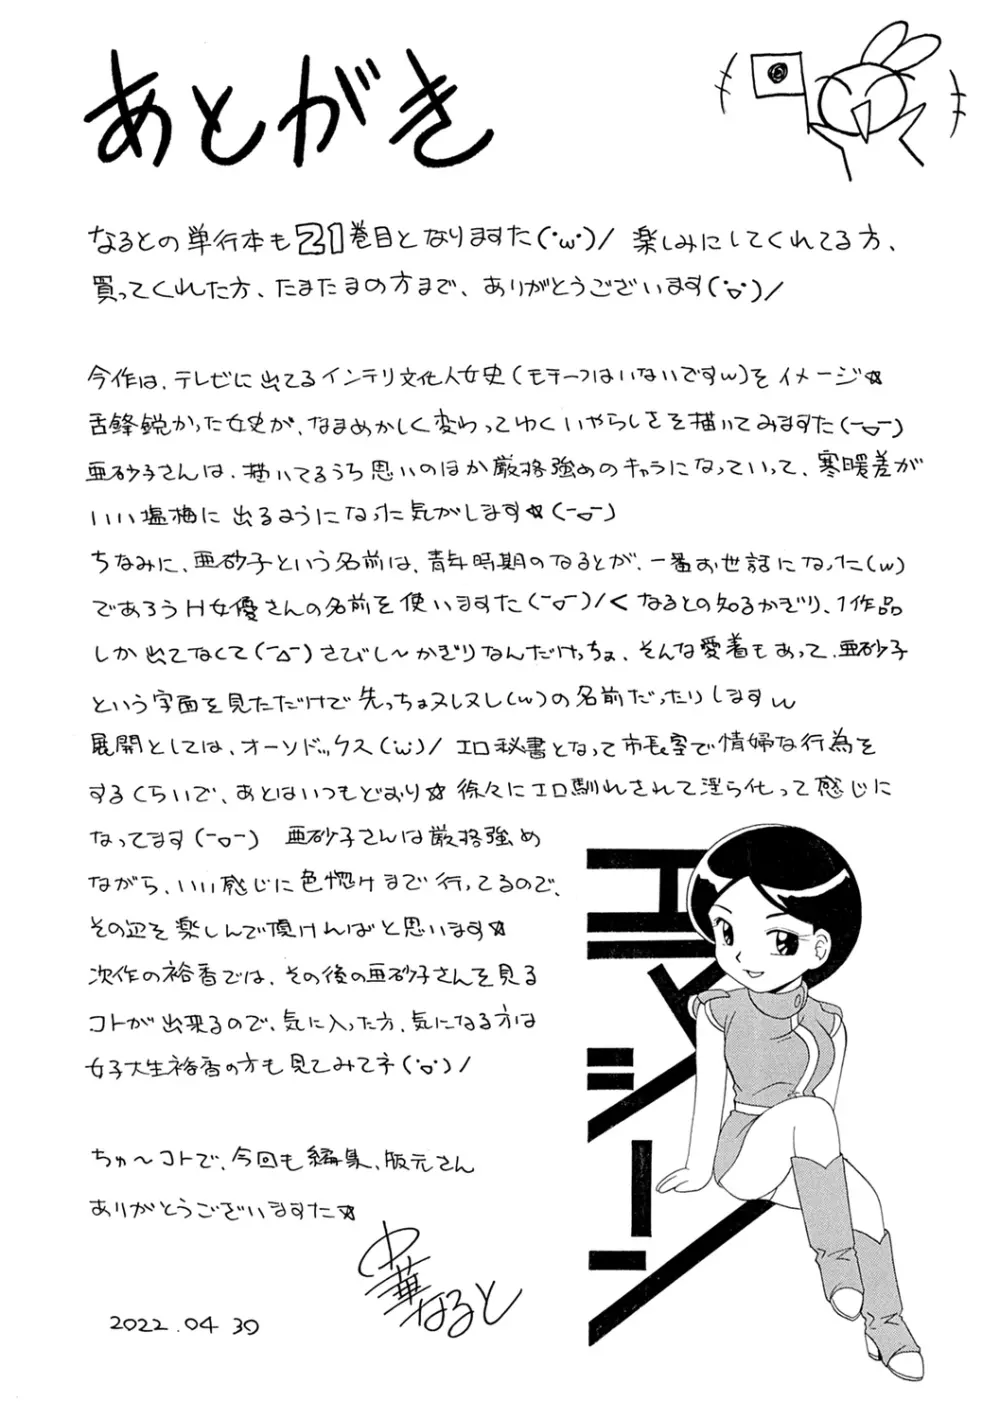 あとがき
なるとの単行本も21巻目となりますた(･ω･)/ 楽しみにしてくれてる方、
買ってくれた方、たまたまの方まで、ありがとうございます(･▽･)/
今作は、テレビに出てるインテリ文化人女史(モチーフはいないですw)をイメージ☆
舌鋒鋭かった女史が、なまめかしく変わってゆくいやらしさを描いてみますた(ｰ▽ｰ)
亜砂子さんは、描いてるうち思いのほか厳格強めのキャラになっていって、寒暖差が
いい塩梅に出るようになった気がします☆(ｰ▽ｰ)
ちなみに、亜砂子という名前は、青年時期のなるとが、一番お世話になった(w)
であろうH女優さんの名前を使いますた(ｰ▽ｰ)/くなるとの知るかぎり、1作品
しか出てなくて(ｰ△ｰ)さびし〜かぎりなんだけっちょ、そんな愛着もあって、亜砂子
という字面を見ただけで先っちょヌレヌレ(w)の名前だったりしますw
展開としては、オーソドックス(･ω･)/ エロ秘書となって市長室で情婦な行為を
するくらいで、あとはいつもどおり☆ 徐々にエロ馴れされて淫ら化って感じに
なってます(ｰ▽ｰ) 亜砂子さんは厳格強め
ながら、いい感じに色惚けまで行ってるので、
その辺を楽しんで頂ければと思います☆
次作の裕香では、その後の亜砂子さんを見る
コトが出来るので、気に入った方、気になる方は
女子大生裕香の方も見てみてネ(･▽･)/
ちゅ〜コトで、今回も編集、版元さん
ありがとうございますた☆
中華なると
2022.04 30
エマジーン